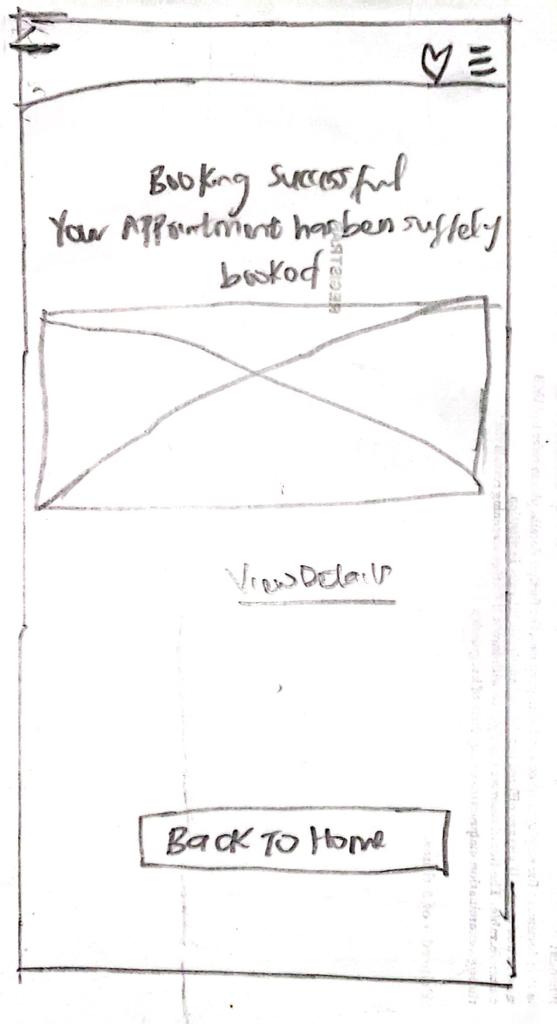 Booking Successful
Your Appointment has ben suffely
booked
REGISTR
View Details
Back To Home